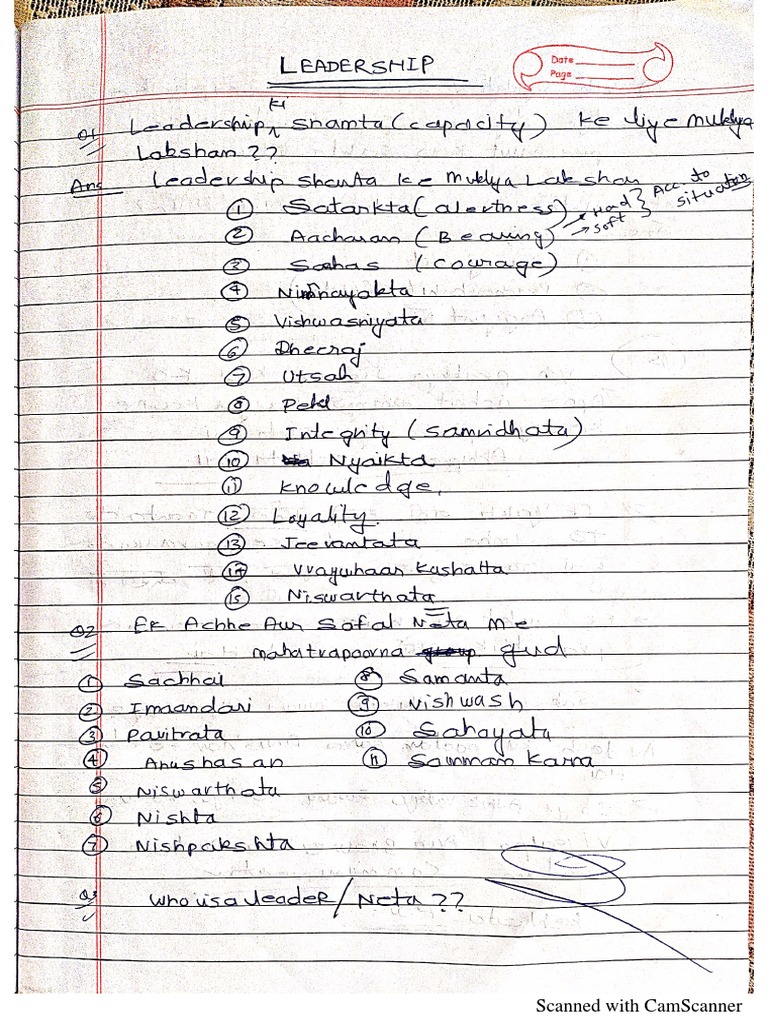 LEADERSHIP
Date
Page
Q1 Leadership ki Shamta (capacity) ke liye mukhya
Laksham ??
Ans Leadership Shamta ke Mukhya Lakshan
1 Satarkta (alertness)
2 Aacharan (Bearing) → Head → Soft } Acc. to situation
3 Sahas (Courage)
4 Nirnayakta
5 Vishwasniyata
6 Dheeraj
7 Utsah
8 Pehl
9 Integrity (Samridhata)
10 Nyaikta
11 Knowledge,
12 Loyality.
13 Jeevantata
14 Vvaywhaan Kushalta
15 Niswarthata
Q2 Ek Achhe Aur Safal Neta me
mahatvapoorna gud
1 Sachhai 8 Samanta
2 Imaandari 9 Vishwash
3 Pavitrata 10 Sahayata
4 Anushasan 11 Samman Karna
5 Niswarthata
6 Nishta
7 Nishpakshta
Q3 Who is a leader/Neta ??
Scanned with CamScanner